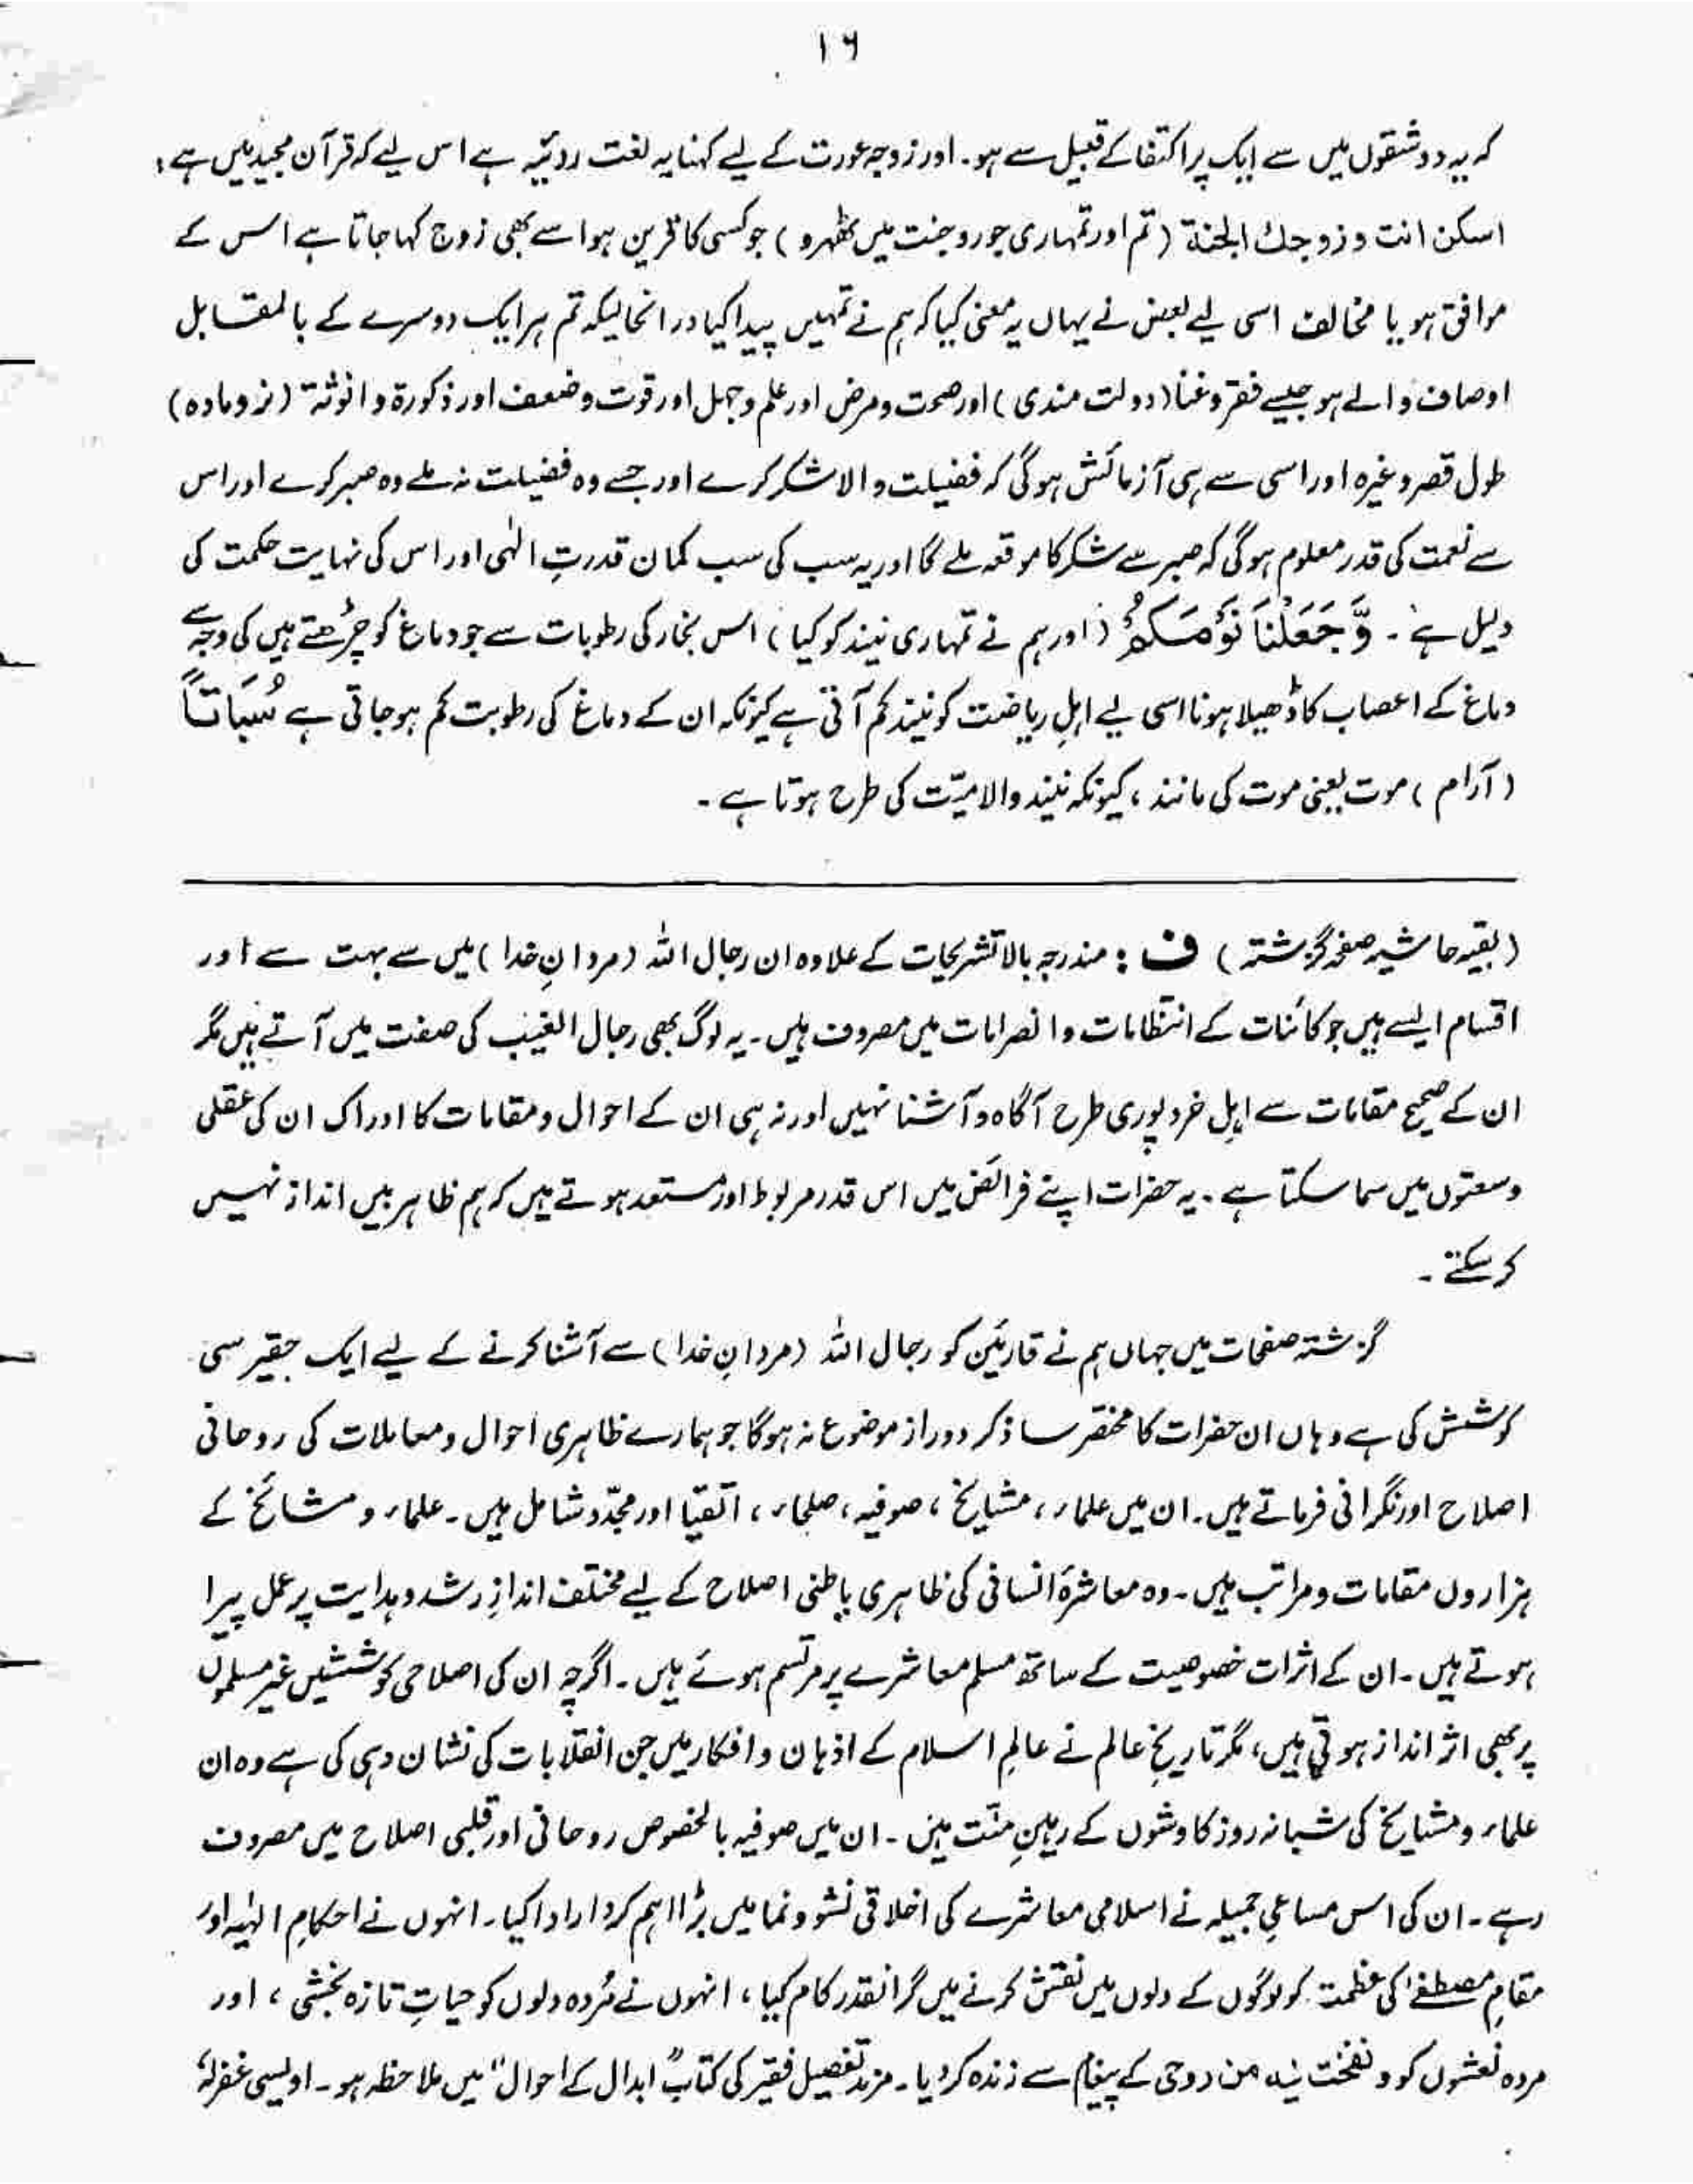 ۱۶
کہ یہ دو شقوں میں سے ایک پر اکتفا کے قبیل سے ہو۔ اور زوجہ عورت کے لیے کہنا یہ لغت ردئیہ ہے اس لیے کہ قرآن مجید میں ہے:
اسکن انت و زوجك الجنة (تم اور تمہاری جورو جنت میں ٹھہرو) جو کسی کا قرین ہو اسے بھی زوج کہا جاتا ہے اس کے
موافق ہو یا مخالف اسی لیے بعض نے یہاں یہ معنی کیا کہ ہم نے تمہیں پیدا کیا درانحالیکہ تم ہر ایک دوسرے کے بالمقابل
اوصاف والے ہو جیسے فقر و غنا (دولت مندی) اور صحت و مرض اور علم و جہل اور قوت و ضعف اور ذکورۃ و انوثۃ (نر و مادہ)
طول قصر وغیرہ اور اسی سے ہی آزمائش ہوگی کہ فضیلت والا شکر کرے اور جسے وہ فضیلت نہ ملے وہ صبر کرے اور اس
سے نعمت کی قدر معلوم ہوگی کہ صبر سے شکر کا موقعہ ملے گا اور یہ سب کی سب کمان قدرتِ الٰہی اور اس کی نہایت حکمت کی
دلیل ہے۔ وَّجَعَلْنَا نَوْمَكُمْ (اور ہم نے تمہاری نیند کو کیا) اس بخار کی رطوبات سے جو دماغ کو چڑھتے ہیں کی وجہ سے
دماغ کے اعصاب کا ڈھیلا ہونا اسی لیے اہلِ ریاضت کو نیند کم آتی ہے کیونکہ ان کے دماغ کی رطوبت کم ہو جاتی ہے سُبَاتًا
(آرام) موت یعنی موت کی مانند، کیونکہ نیند والا میّت کی طرح ہوتا ہے۔
(بقیہ حاشیہ صفحہ گزشتہ) ف: مندرجہ بالا تشریحات کے علاوہ ان رجال اللہ (مردانِ خدا) میں سے بہت سے اور
اقسام ایسے ہیں جو کائنات کے انتظامات و انصرامات میں مصروف ہیں۔ یہ لوگ بھی رجال الغیب کی صفت میں آتے ہیں مگر
ان کے صحیح مقامات سے اہلِ خرد پوری طرح آگاہ و آشنا نہیں اور نہ ہی ان کے احوال و مقامات کا ادراک ان کی عقلی
وسعتوں میں سما سکتا ہے۔ یہ حضرات اپنے فرائض میں اس قدر مربوط اور مستعد ہوتے ہیں کہ ہم ظاہر بیں انداز نہیں
کر سکتے۔
گزشتہ صفحات میں جہاں ہم نے قارئین کو رجال اللہ (مردانِ خدا) سے آشنا کرنے کے لیے ایک حقیر سی
کوشش کی ہے وہاں ان حضرات کا مختصر سا ذکر دور از موضوع نہ ہوگا جو ہمارے ظاہری احوال و معاملات کی روحانی
اصلاح اور نگرانی فرماتے ہیں۔ ان میں علماء، مشایخ، صوفیہ، صلحاء، اتقیا اور مجدّد شامل ہیں۔ علماء و مشائخ کے
ہزاروں مقامات و مراتب ہیں۔ وہ معاشرۂ انسانی کی ظاہری باطنی اصلاح کے لیے مختلف اندازِ رشد و ہدایت پر عمل پیرا
ہوتے ہیں۔ ان کے اثرات خصوصیت کے ساتھ مسلم معاشرے پر مرتسم ہوئے ہیں۔ اگرچہ ان کی اصلاحی کوششیں غیر مسلموں
پر بھی اثر انداز ہوتی ہیں، مگر تاریخِ عالم نے عالمِ اسلام کے اذہان و افکار میں جن انقلابات کی نشان دہی کی ہے وہ ان
علماء و مشایخ کی شبانہ روز کاوشوں کے رہینِ منّت ہیں۔ ان میں صوفیہ بالخصوص روحانی اور قلبی اصلاح میں مصروف
رہے۔ ان کی اس مساعیِ جمیلہ نے اسلامی معاشرے کی اخلاقی نشوونما میں بڑا اہم کردار ادا کیا۔ انہوں نے احکامِ الٰہیہ اور
مقامِ مصطفےٰ کی عظمت کو لوگوں کے دلوں میں نقش کرنے میں گرانقدر کام کیا، انہوں نے مُردہ دلوں کو حیاتِ تازہ بخشی، اور
مردہ نعشوں کو و نفخت فیہ من روحی کے پیغام سے زندہ کر دیا۔ مزید تفصیل فقیر کی کتاب "ابدال کے احوال" میں ملاحظہ ہو۔ اویسی غفرلہٗ